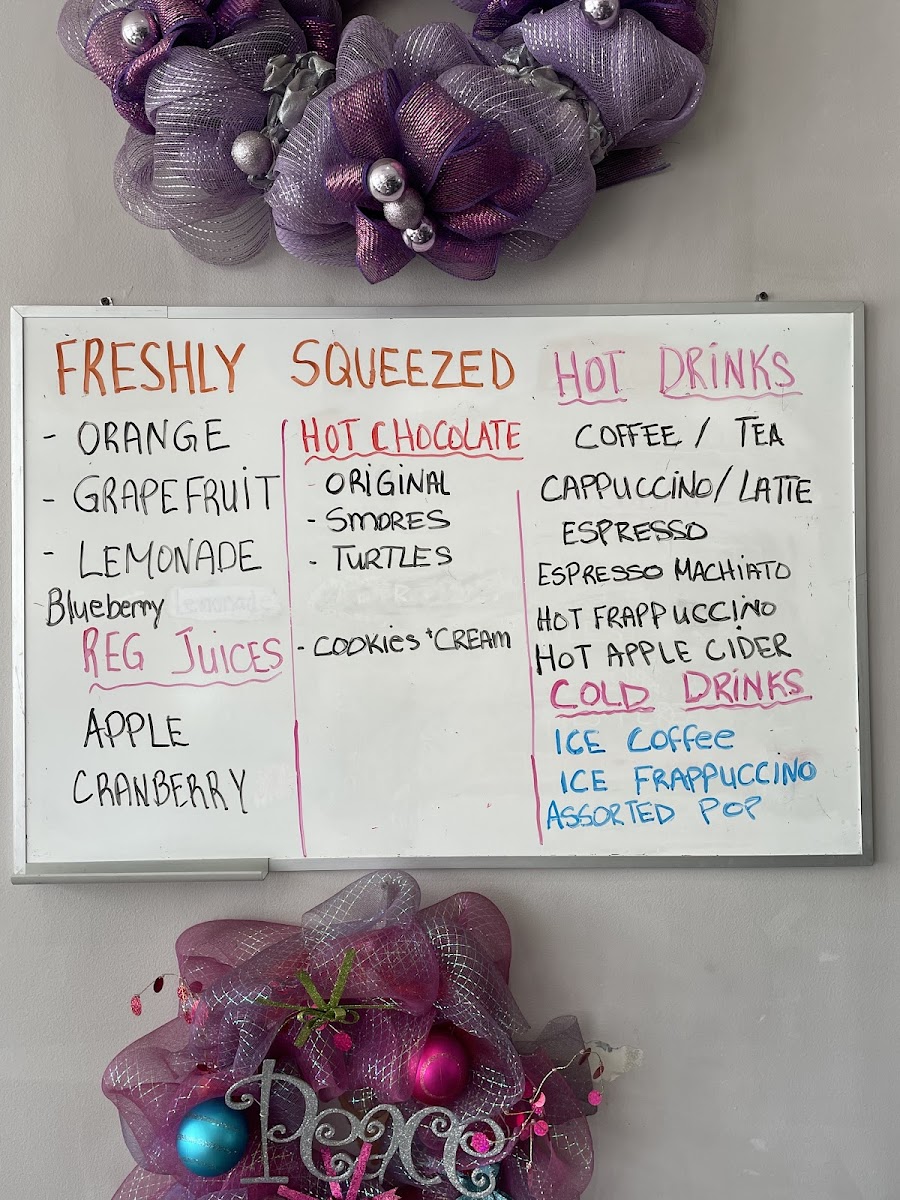 FRESHLY SQUEEZED
- ORANGE
- GRAPEFRUIT
- LEMONADE
Blueberry lemonade
REG JUICES
APPLE
CRANBERRY
HOT CHOCOLATE
- ORIGINAL
- SMORES
- TURTLES
- COOKIES + CREAM
HOT DRINKS
COFFEE / TEA
CAPPUCCINO/LATTE
ESPRESSO
ESPRESSO MACHIATO
HOT FRAPPUCCINO
HOT APPLE CIDER
COLD DRINKS
ICE COFFee
ICE FRAPPUCCINO
ASSORTED POP
Peace